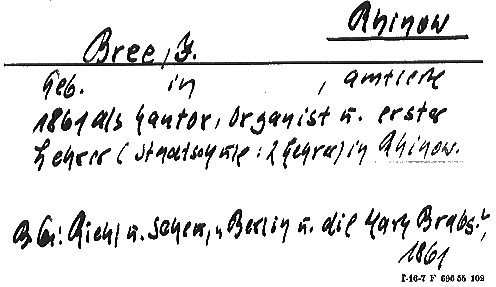 Rhinow
Bree, F.
Geb. in , amtierte
1861 als Kantor, Organist u. erster
Lehrer (Stadtschule: 2 Lehrer) in Rhinow.
Riehl u. Scheu, "Berlin u. die Mark Brdbg.",
1861
I-16-7 F 696 55 109